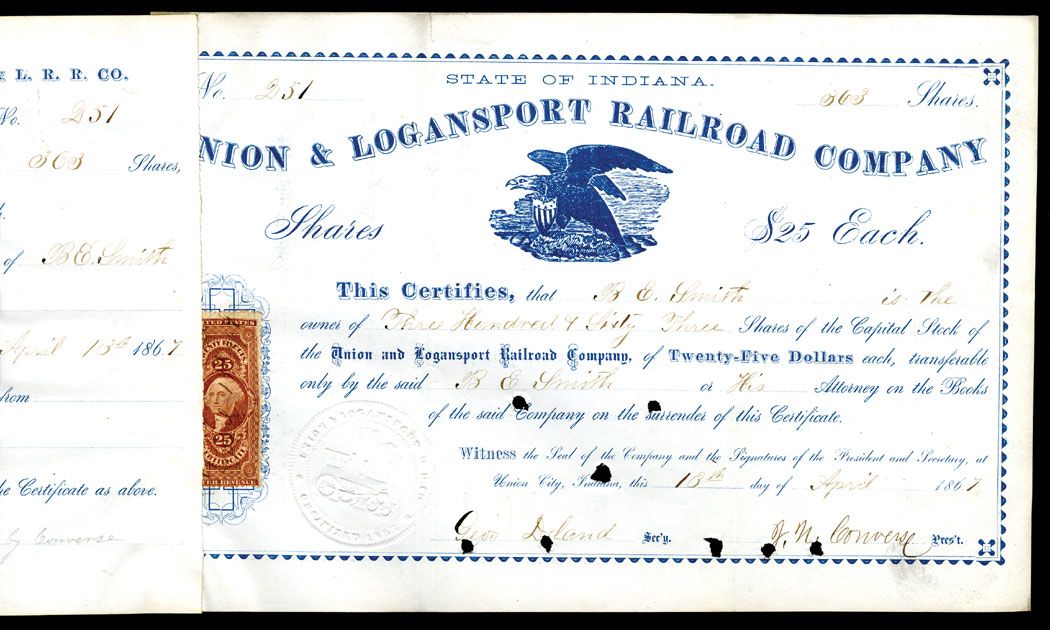 L. R. R. CO.
No. 251
363 Shares,
of B E. Smith
April 13th 1867
the Certificate as above.
by Converse
No. 251
STATE OF INDIANA.
363 Shares.
NION & LOGANSPORT RAILROAD COMPANY
Shares $25 Each.
This Certifies, that B E. Smith is the
owner of Three Hundred & Sixty Three Shares of the Capital Stock of
the Union and Logansport Railroad Company, of Twenty-Five Dollars each, transferable
only by the said B E Smith or His Attorney on the Books
of the said Company on the surrender of this Certificate.
Witness the Seal of the Company and the Signatures of the President and Secretary, at
Union City, Indiana, this 13th day of April 1867
Sec'y. J. N. Converse Pres't.
25
25